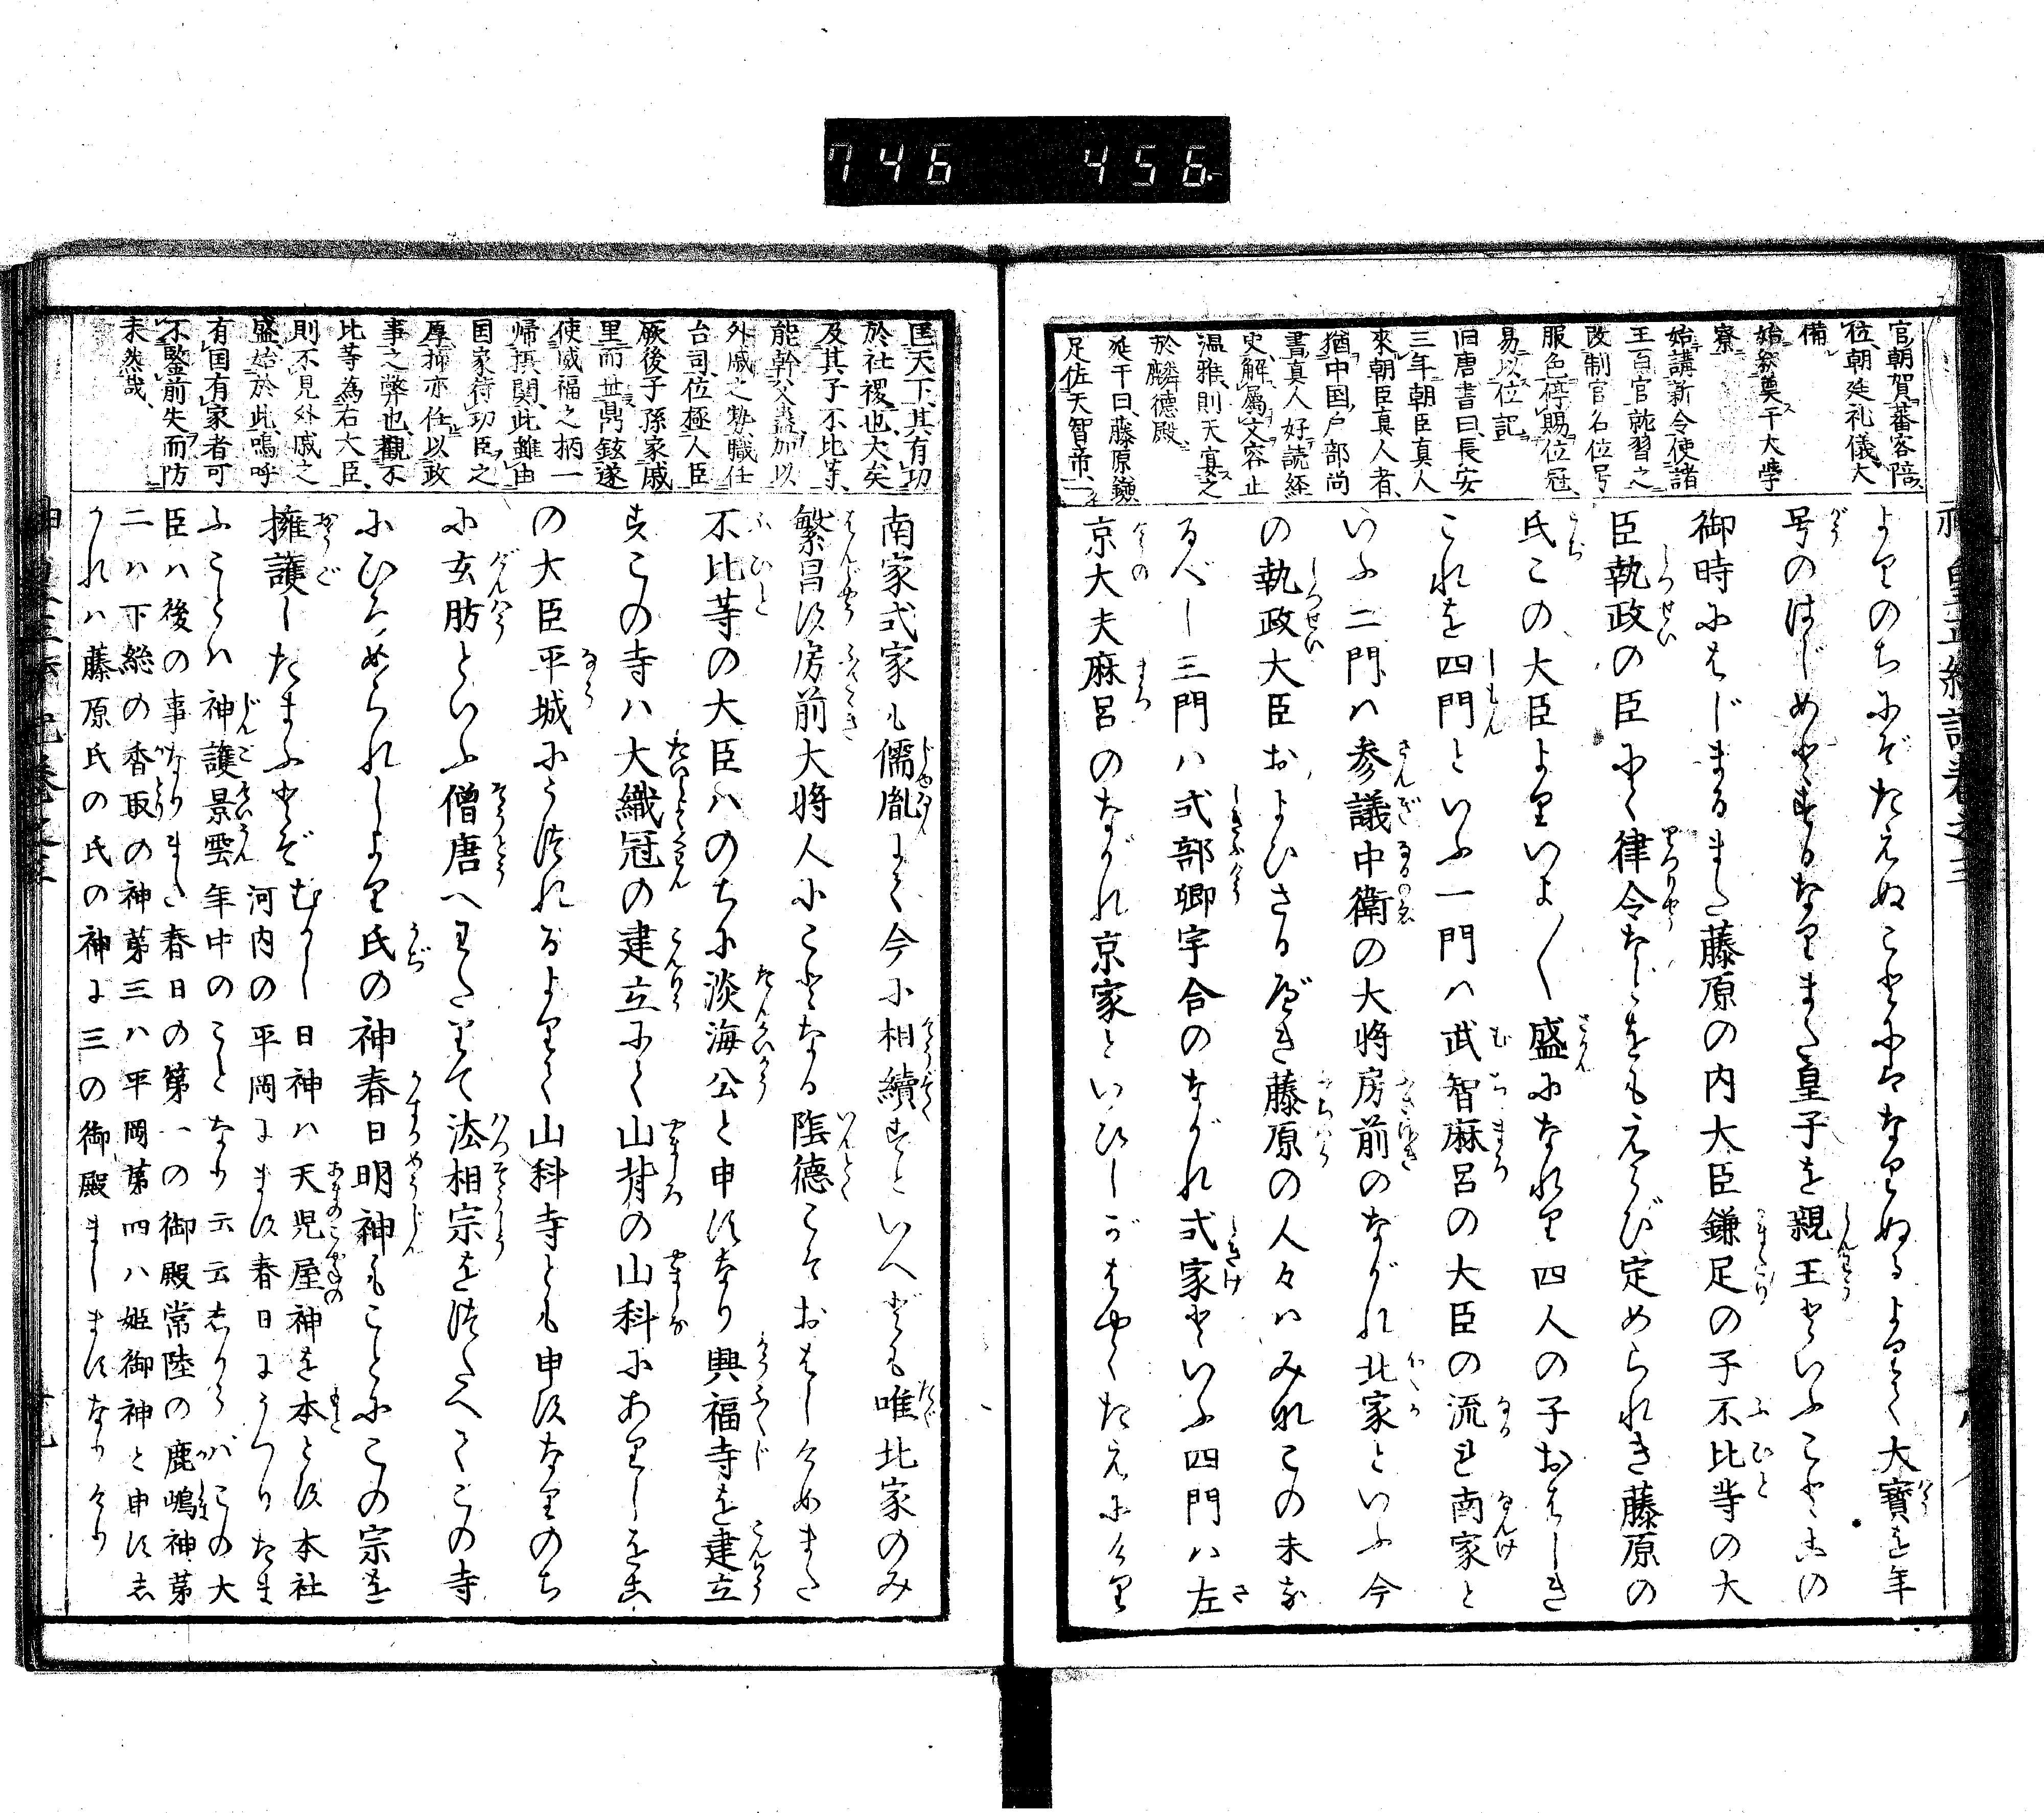 746 456
官朝賀蕃客陪
位朝廷礼儀大
備
始釈奠于大学
寮
始講新令使諸
王百官就習之
改制官名位号
服色停賜位冠
易以位記
旧唐書曰長安
三年朝臣真人
來朝臣真人者
猶中国戸部尚
書真人好読経
史解属文容止
温雅則天宴之
於麟徳殿
延于曰藤原鎌
足佐天智帝一
よりのちにぞたえぬことにはなりぬるよつて大寳を年
号のはじめとするなりまた皇子を親王といふことこの
御時にはじまるまた藤原の内大臣鎌足の子不比等の大
臣執政の臣にて律令などをもえらび定められき藤原の
氏この大臣よりいよ〱盛になれり四人の子おはしき
これを四門といふ一門ハ武智麻呂の大臣の流を南家と
いふ二門ハ参議中衛の大将房前のながれ北家といふ今
の執政大臣およひさるべき藤原の人々ハみなこの末な
るべし三門ハ式部卿宇合のながれ式家といふ四門ハ左
京大夫麻呂のながれ京家といひしがはやくたえにけり
匡天下其有功
於社稷也大矣
及其子不比等
能幹父蠱加以
外戚之勢職任
台司位極人臣
厥後子孫家戚
里而世鼎鉉遂
使威福之柄一
帰摂関此雖由
国家待功臣之
厚抑亦任以政
事之弊也観不
比等為右大臣
則不見外戚之
盛始於此嗚呼
有国有家者可
不鑒前失而防
未然哉
南家式家も儒胤にて今に相續すといへども唯北家のみ
繁昌す房前大将人にことなる陰徳こそおはしけめまた
不比等の大臣ハのちに淡海公と申すなり興福寺を建立
すこの寺ハ大織冠の建立にて山背の山科にありしをこ
の大臣平城にうつれるよりて山科寺とも申すなりのち
に玄肪といふ僧唐へわたりて法相宗をつたへてこの寺
にひろめられしより氏の神春日明神もことにこの宗を
擁護したまふとぞ
むかし日神ハ天児屋神を本とす本社
河内の平岡にます春日にうつりたま
ふことハ神護景雲年中のことなり云云しからバこの大
臣ハ後の事なりまた春日の第一の御殿常陸の鹿嶋神第
二ハ下総の香取の神第三ハ平岡第四ハ姫御神と申す志
かれハ藤原氏の氏の神に三の御殿ましますなりけり